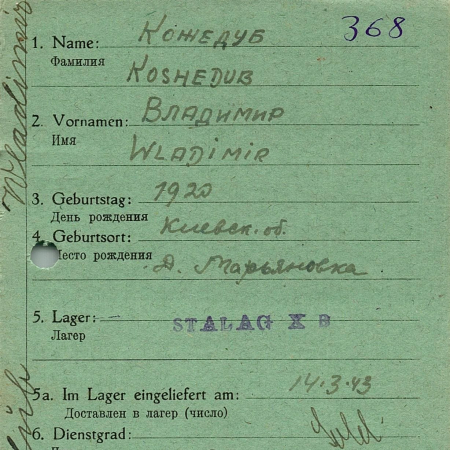 368
1. Name: Кожедуб
Фамилия
Koshedub
2. Vornamen: Владимир
Имя
Wladimir
3. Geburtstag: 1920
День рождения
4. Geburtsort: Киевск. об.
Место рождения
д. Марьяновка
5. Lager: STALAG X B
Лагер
5a. Im Lager eingeliefert am: 14.3.43
Доставлен в лагер (число)
6. Dienstgrad:
Wladimir